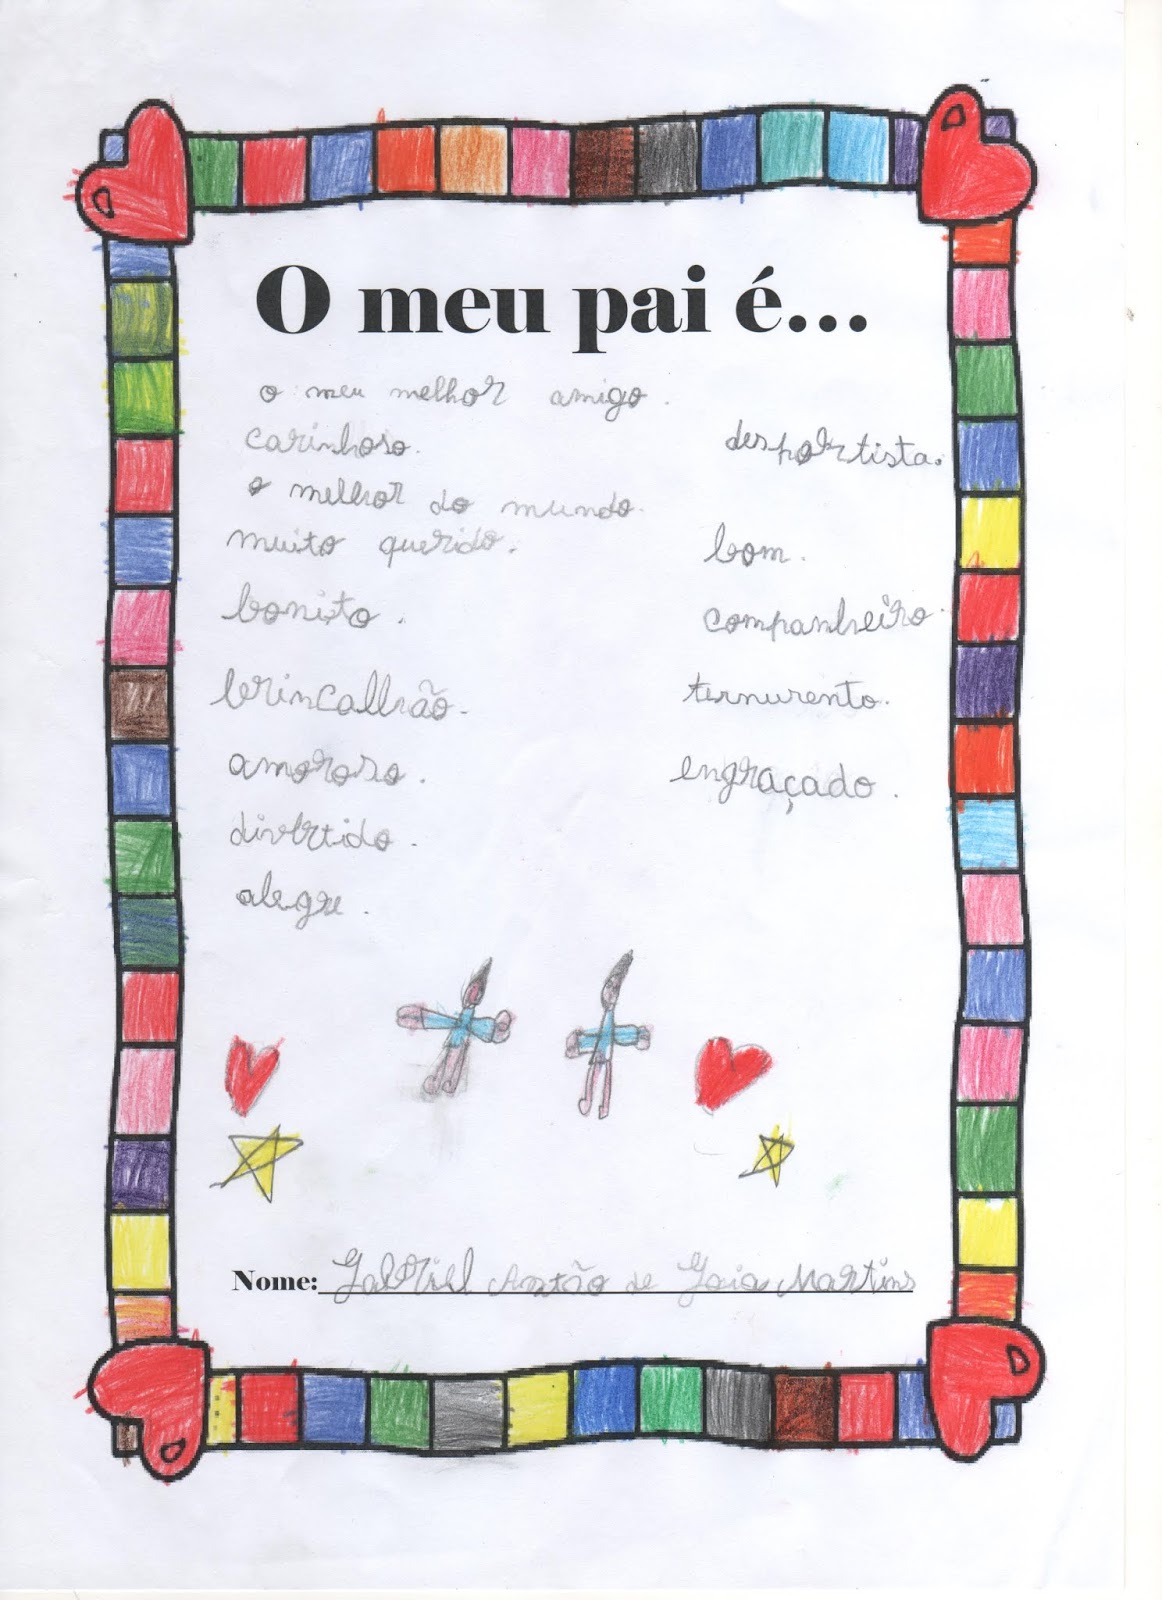 O meu pai é...
o meu melhor amigo.
carinhoso.
o melhor do mundo.
muito querido.
bonito.
brincalhão.
amoroso.
divertido.
alegre.
desportista.
bom.
companheiro.
ternurento.
engraçado.
Nome: Gabriel Antão de Gaia Martins